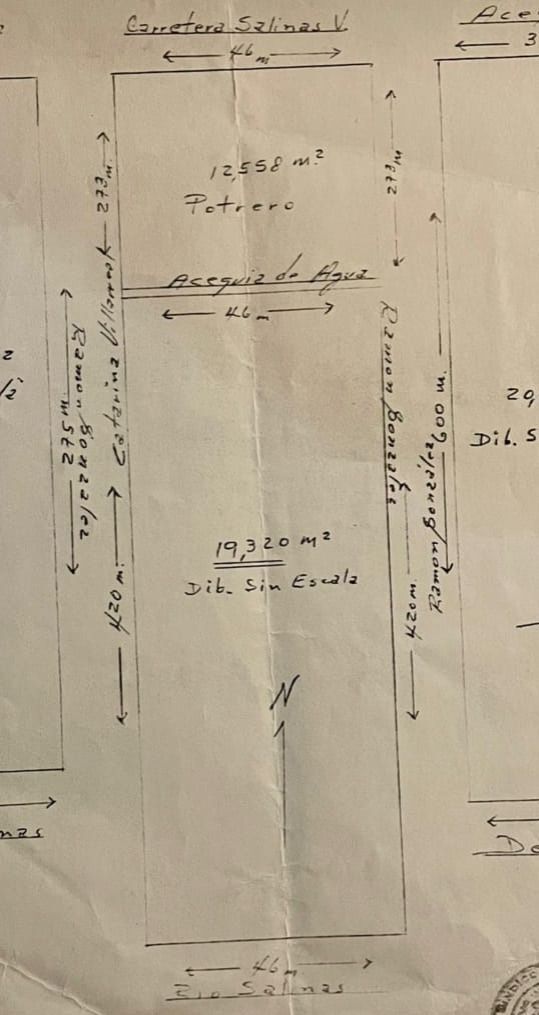 Carretera Salinas V.
46 m
12,558 m.²
Potrero
273 m.
273 m
Acequia de Agua
46 m
Catarina Villarreal
Ramon Gonzalez
420 m.
420 m.
19,320 m²
Dib. Sin Escala
N
46 m
Rio Salinas
275 m.
Ramon Gonzalez
nas
Ace
3
600 m.
Ramon González
20,
Dib. S
De